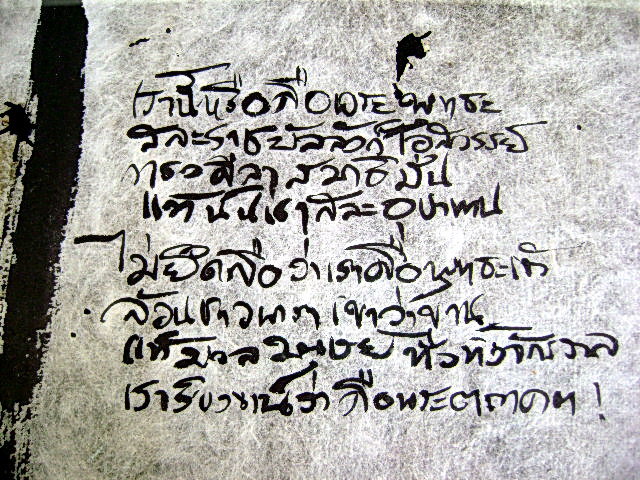 เรานี้หรือคือพระพุทธะ
สละราชบัลลังก์ไอศวรรย์
ทรงศีลา สมาธิมั่น
แท้นั้นเราสละอุปาทาน
ไม่ยึดถือว่าเราคือพุทธะเจ้า
ล้วนชาว เขาว่าขาน
แท้ มนุษย์ทั่วทั้งจักรวาล
เรา ว่าคือพระตถาคต !